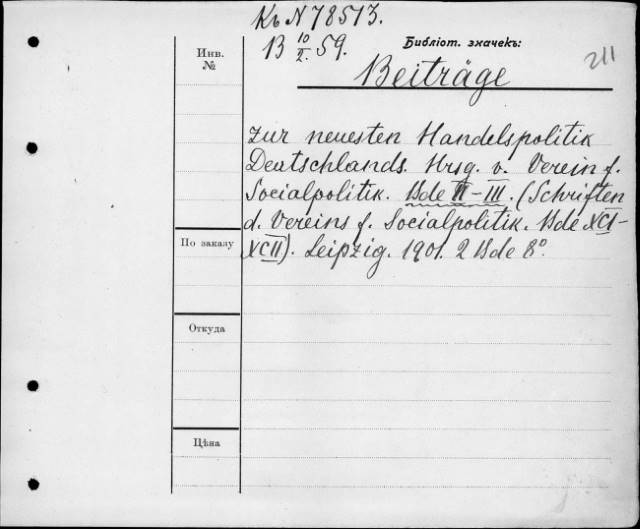 Къ N 78513.
В 10/2. 59.
Библіот. значекъ:
211
Инв.
№
Beiträge
zur neuesten Handelspolitik
Deutschlands. Hrsg. v. Verein f.
Socialpolitik. Bde II-III. (Schriften
d. Vereins f. Socialpolitik. Bde XCI-
XCII). Leipzig. 1901. 2 Bde 8°.
По заказу
Откуда
Цѣна